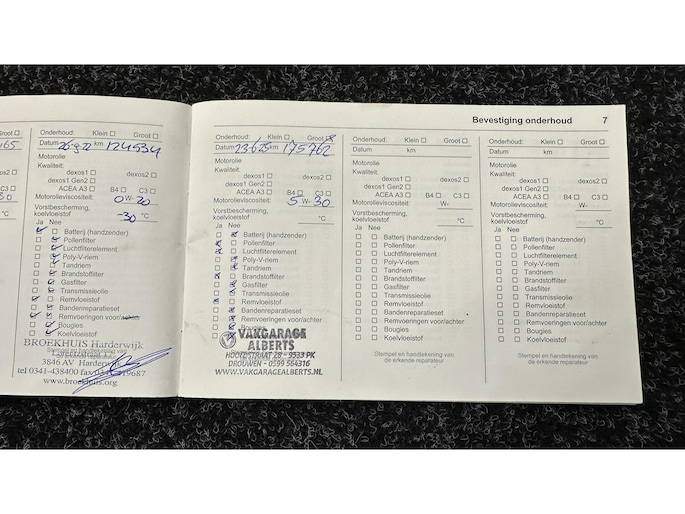 Bevestiging onderhoud 7
Groot
465
dexos2
C3
50
°C
Onderhoud: Klein Groot
Datum 26-9-22 km 124534
Motorolie
Kwaliteit:
dexos1 dexos2
dexos1 Gen2
ACEA A3 B4 C3
Motorolieviscositeit: 0 W- 20
Vorstbescherming,
koelvloeistof -30 °C
Ja Nee
Batterij (handzender)
Pollenfilter
Luchtfilterelement
Poly-V-riem
Tandriem
Brandstoffilter
Gasfilter
Transmissieolie
Remvloeistof
Bandenreparatieset
Remvoeringen voor/achter
Bougies
Koelvloeistof
BROEKHUIS Harderwijk
3846 AV Harderwijk
tel 0341-438400 fax
www.broekhuis.org
Onderhoud: Klein Groot
Datum 23-6-25 km 175762
Motorolie
Kwaliteit:
dexos1 dexos2
dexos1 Gen2
ACEA A3 B4 C3
Motorolieviscositeit: 5 W- 30
Vorstbescherming,
koelvloeistof °C
Ja Nee
Batterij (handzender)
Pollenfilter
Luchtfilterelement
Poly-V-riem
Tandriem
Brandstoffilter
Gasfilter
Transmissieolie
Remvloeistof
Bandenreparatieset
Remvoeringen voor/achter
Bougies
VAKGARAGE
ALBERTS
HOOFDSTRAAT 28 - 9533 PK
DROUWEN - 0599 564316
WWW.VAKGARAGEALBERTS.NL
Onderhoud: Klein Groot
Datum km
Motorolie
Kwaliteit:
dexos1 dexos2
dexos1 Gen2
ACEA A3 B4 C3
Motorolieviscositeit: W-
Vorstbescherming,
koelvloeistof °C
Ja Nee
Batterij (handzender)
Pollenfilter
Luchtfilterelement
Poly-V-riem
Tandriem
Brandstoffilter
Gasfilter
Transmissieolie
Remvloeistof
Bandenreparatieset
Remvoeringen voor/achter
Bougies
Koelvloeistof
Stempel en handtekening van
de erkende reparateur
Onderhoud: Klein Groot
Datum km
Motorolie
Kwaliteit:
dexos1 dexos2
dexos1 Gen2
ACEA A3 B4 C3
Motorolieviscositeit: W-
Vorstbescherming,
koelvloeistof °C
Ja Nee
Batterij (handzender)
Pollenfilter
Luchtfilterelement
Poly-V-riem
Tandriem
Brandstoffilter
Gasfilter
Transmissieolie
Remvloeistof
Bandenreparatieset
Remvoeringen voor/achter
Bougies
Koelvloeistof
Stempel en handtekening van
de erkende reparateur